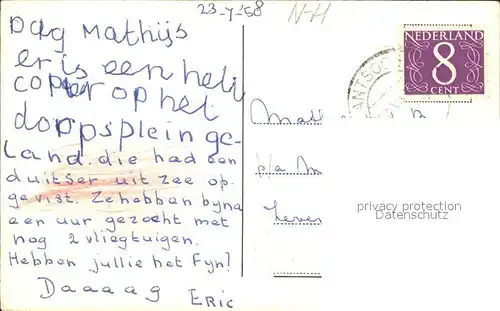 23-7-'58
N-H
Dag Mathijs
er is een heli
copter op het
dorpsplein ge-
land. die had een
duitser uit zee op.
gevist. Ze hebben byna
een uur gezocht met
nog 2 vliegtuigen.
Hebben jullie het Fyn?
Daaaag ERIC
NEDERLAND
8
CENT
p/a
privacy protection
Datenschutz